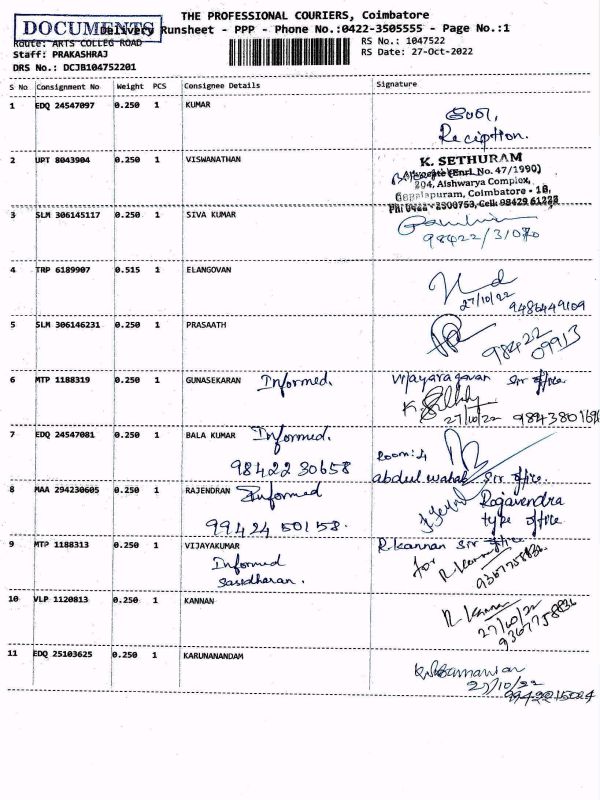 THE PROFESSIONAL COURIERS, Coimbatore
DOCUMENTS
Delivery Runsheet - PPP - Phone No.:0422-3505555 - Page No.:1
Route: ARTS COLLEG ROAD
RS No.: 1047522
Staff: PRAKASHRAJ
RS Date: 27-Oct-2022
DRS No.: DCJB104752201
S No Consignment No Weight PCS Consignee Details Signature
1 EDQ 24547097 0.250 1 KUMAR
Reception.
2 UPT 8043904 0.250 1 VISWANATHAN
K. SETHURAM
Advocate (Enrl. No. 47/1990)
204, Aishwarya Complex,
Gopalapuram, Coimbatore - 18,
Ph: 0422 - 2300753, Cell: 98429 61222
3 SLM 306145117 0.250 1 SIVA KUMAR
98422/31070
4 TRP 6189907 0.515 1 ELANGOVAN
27/10/22
9486449109
5 SLM 306146231 0.250 1 PRASAATH
98422
09913
6 MTP 1188319 0.250 1 GUNASEKARAN Informed.
Vijayaragavan Sir office
27/10/22
7 EDQ 24547081 0.250 1 BALA KUMAR Informed.
98422 30658
Room: 4
abdul wahab Sir office.
8 MAA 294230605 0.250 1 RAJENDRAN Informed
99424 50158.
Ragavendra
type office
9 MTP 1188313 0.250 1 VIJAYAKUMAR
Informed
Sasidharan.
R.kannan Sir office
for R.Kannan
9367758836
10 VLP 1120813 0.250 1 KANNAN
R. Kannan
27/10/22
9367758836
11 EDQ 25103625 0.250 1 KARUNANANDAM
27/10/22
9942215024